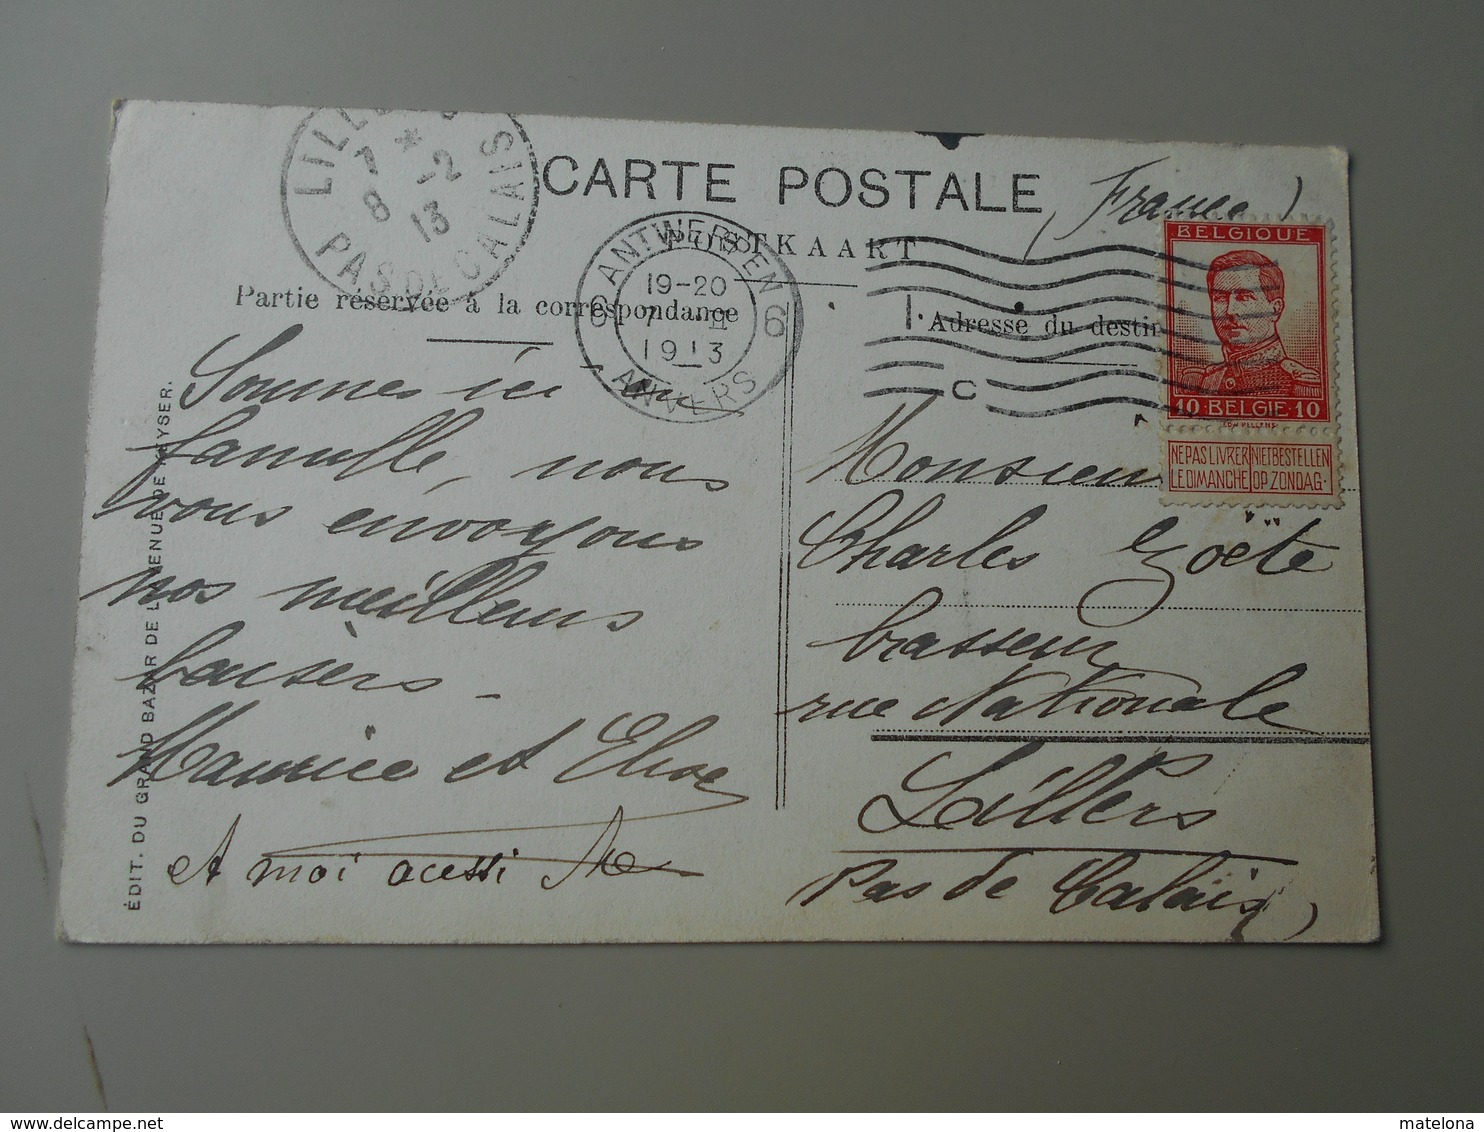 CARTE POSTALE
(France)
POSTKAART
Partie réservée à la correspondance
Adresse du destin
LILLE
7 * -2
8 13
PAS DE CALAIS
ANTWERPEN
19-20
6 7 II 6
1913
ANVERS
1.
C
BELGIQUE
10 BELGIE 10
NE PAS LIVRER NIET BESTELLEN
LE DIMANCHE OP ZONDAG.
Sommes ici en
famille, nous
vous envoyons
nos meilleurs
baisers -
Maurice et Elise
et moi aussi
Monsieur
Charles Goëte
brasseur
rue Nationale
Lillers
Pas de Calais)
ÉDIT. DU GRAND BAZAR DE L'AVENUE DE KEYSER.
delcampe.net
matelona